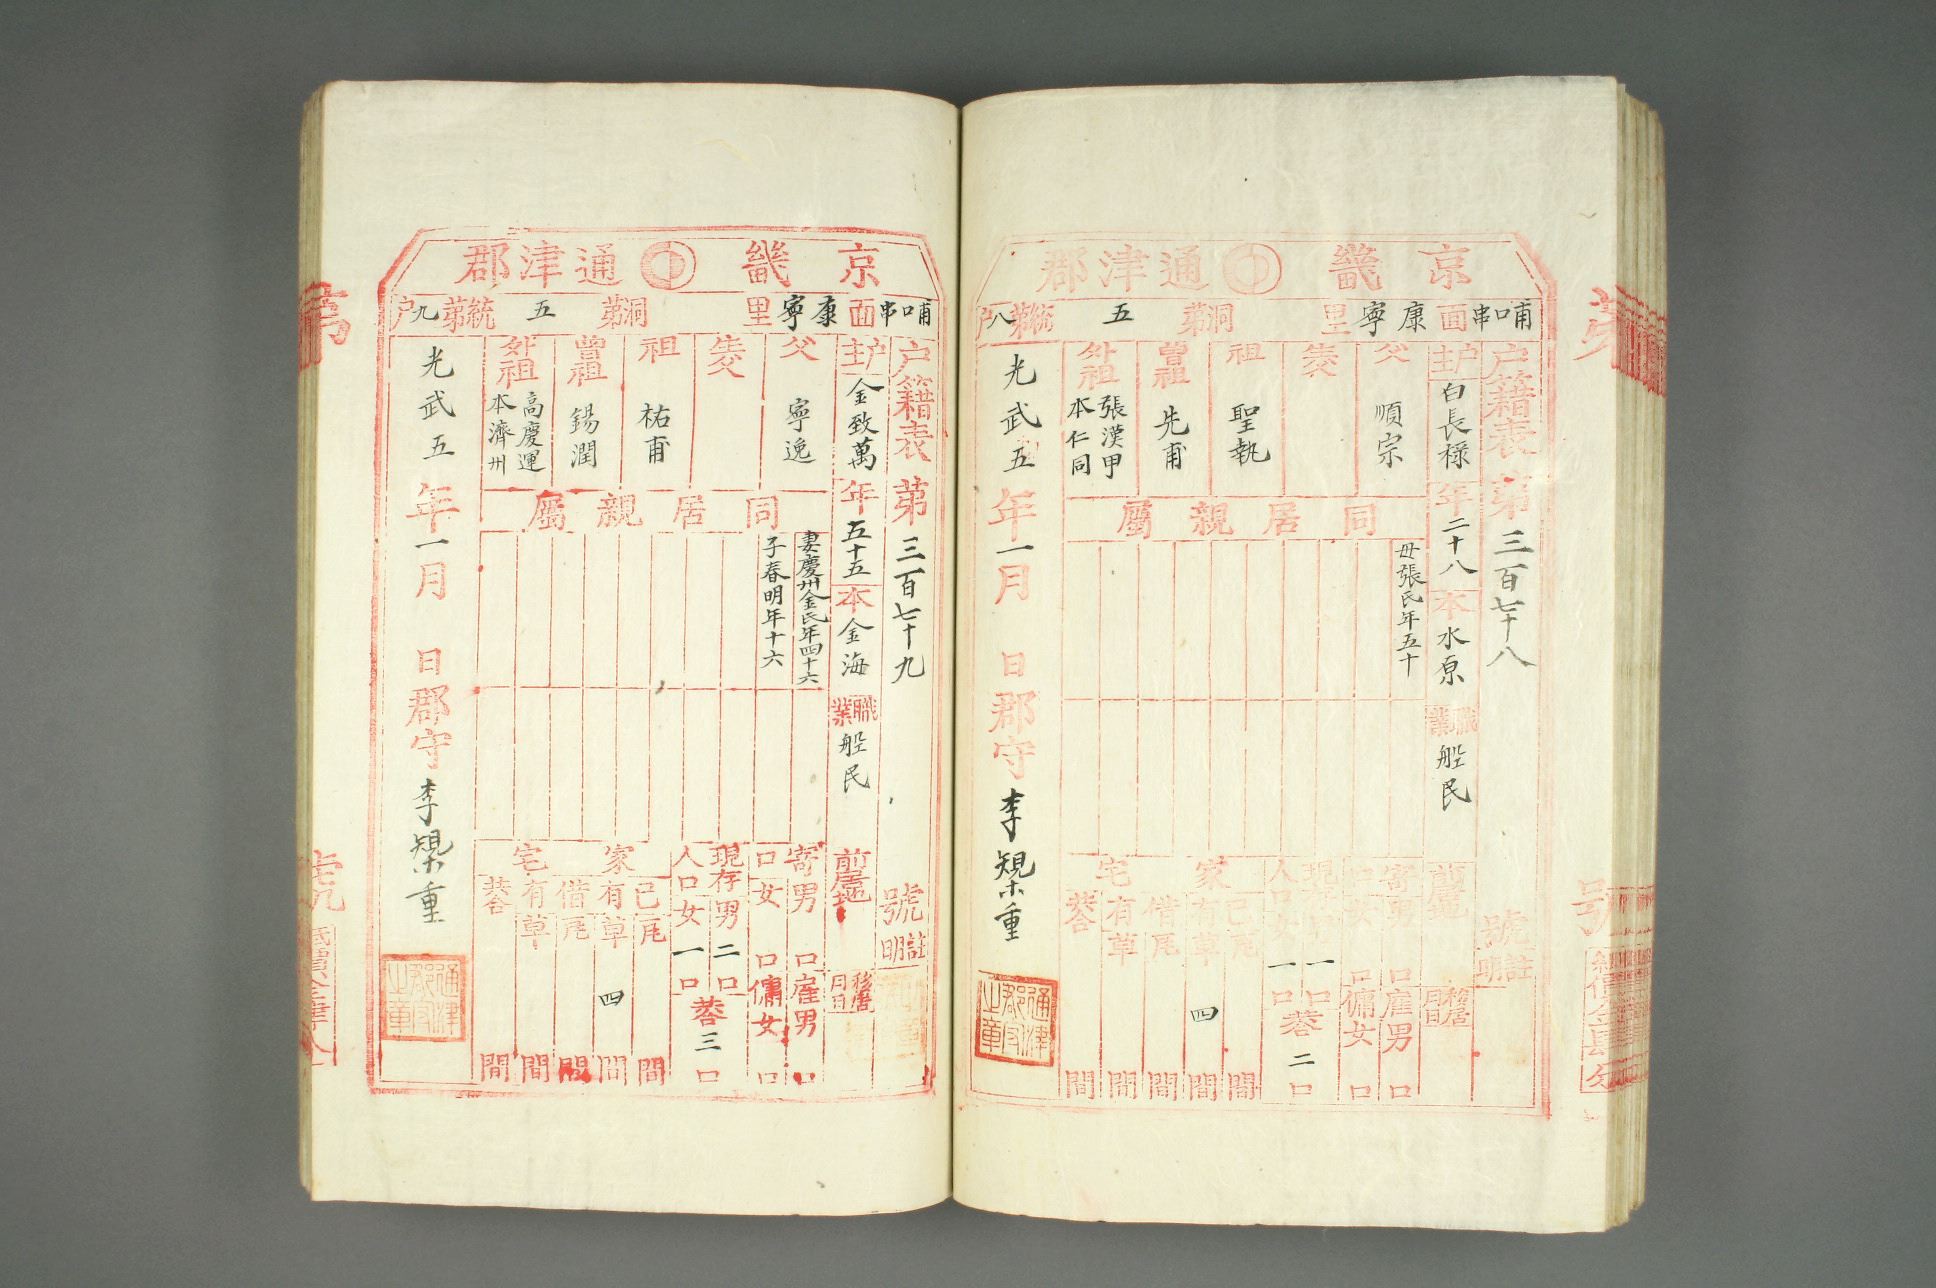 京畿 通津郡
哺口串面 康寧里 洞第五統第八戶
戶籍表第三百七十八號
註明
戶主白長祿年二十八本水原職業船民
前居地
移居月日
父順宗
生父
祖聖執
曾祖先甫
外祖張漢甲本仁同
同居親屬
母張氏年五十
寄口 男口 女口
雇男口 傭女口
現存人口 男一口 女一口 共二口
家宅 己有 瓦間 草四間
借有 瓦間 草間
共間
光武五年一月 日郡守李
重
通津郡守之章
京畿 通津郡
哺口串面 康寧里 洞第五統第九戶
戶籍表第三百七十九號
註明
戶主金致萬年五十五本金海職業船民
前居地
移居月日
父寧逸
生父
祖祐甫
曾祖錫潤
外祖高慶運本濟州
同居親屬
妻慶州金氏年四十六
子春明年十六
寄口 男口 女口
雇男口 傭女口
現存人口 男二口 女一口 共三口
家宅 己有 瓦間 草四間
借有 瓦間 草間
共間
光武五年一月 日郡守李
重
通津郡守之章